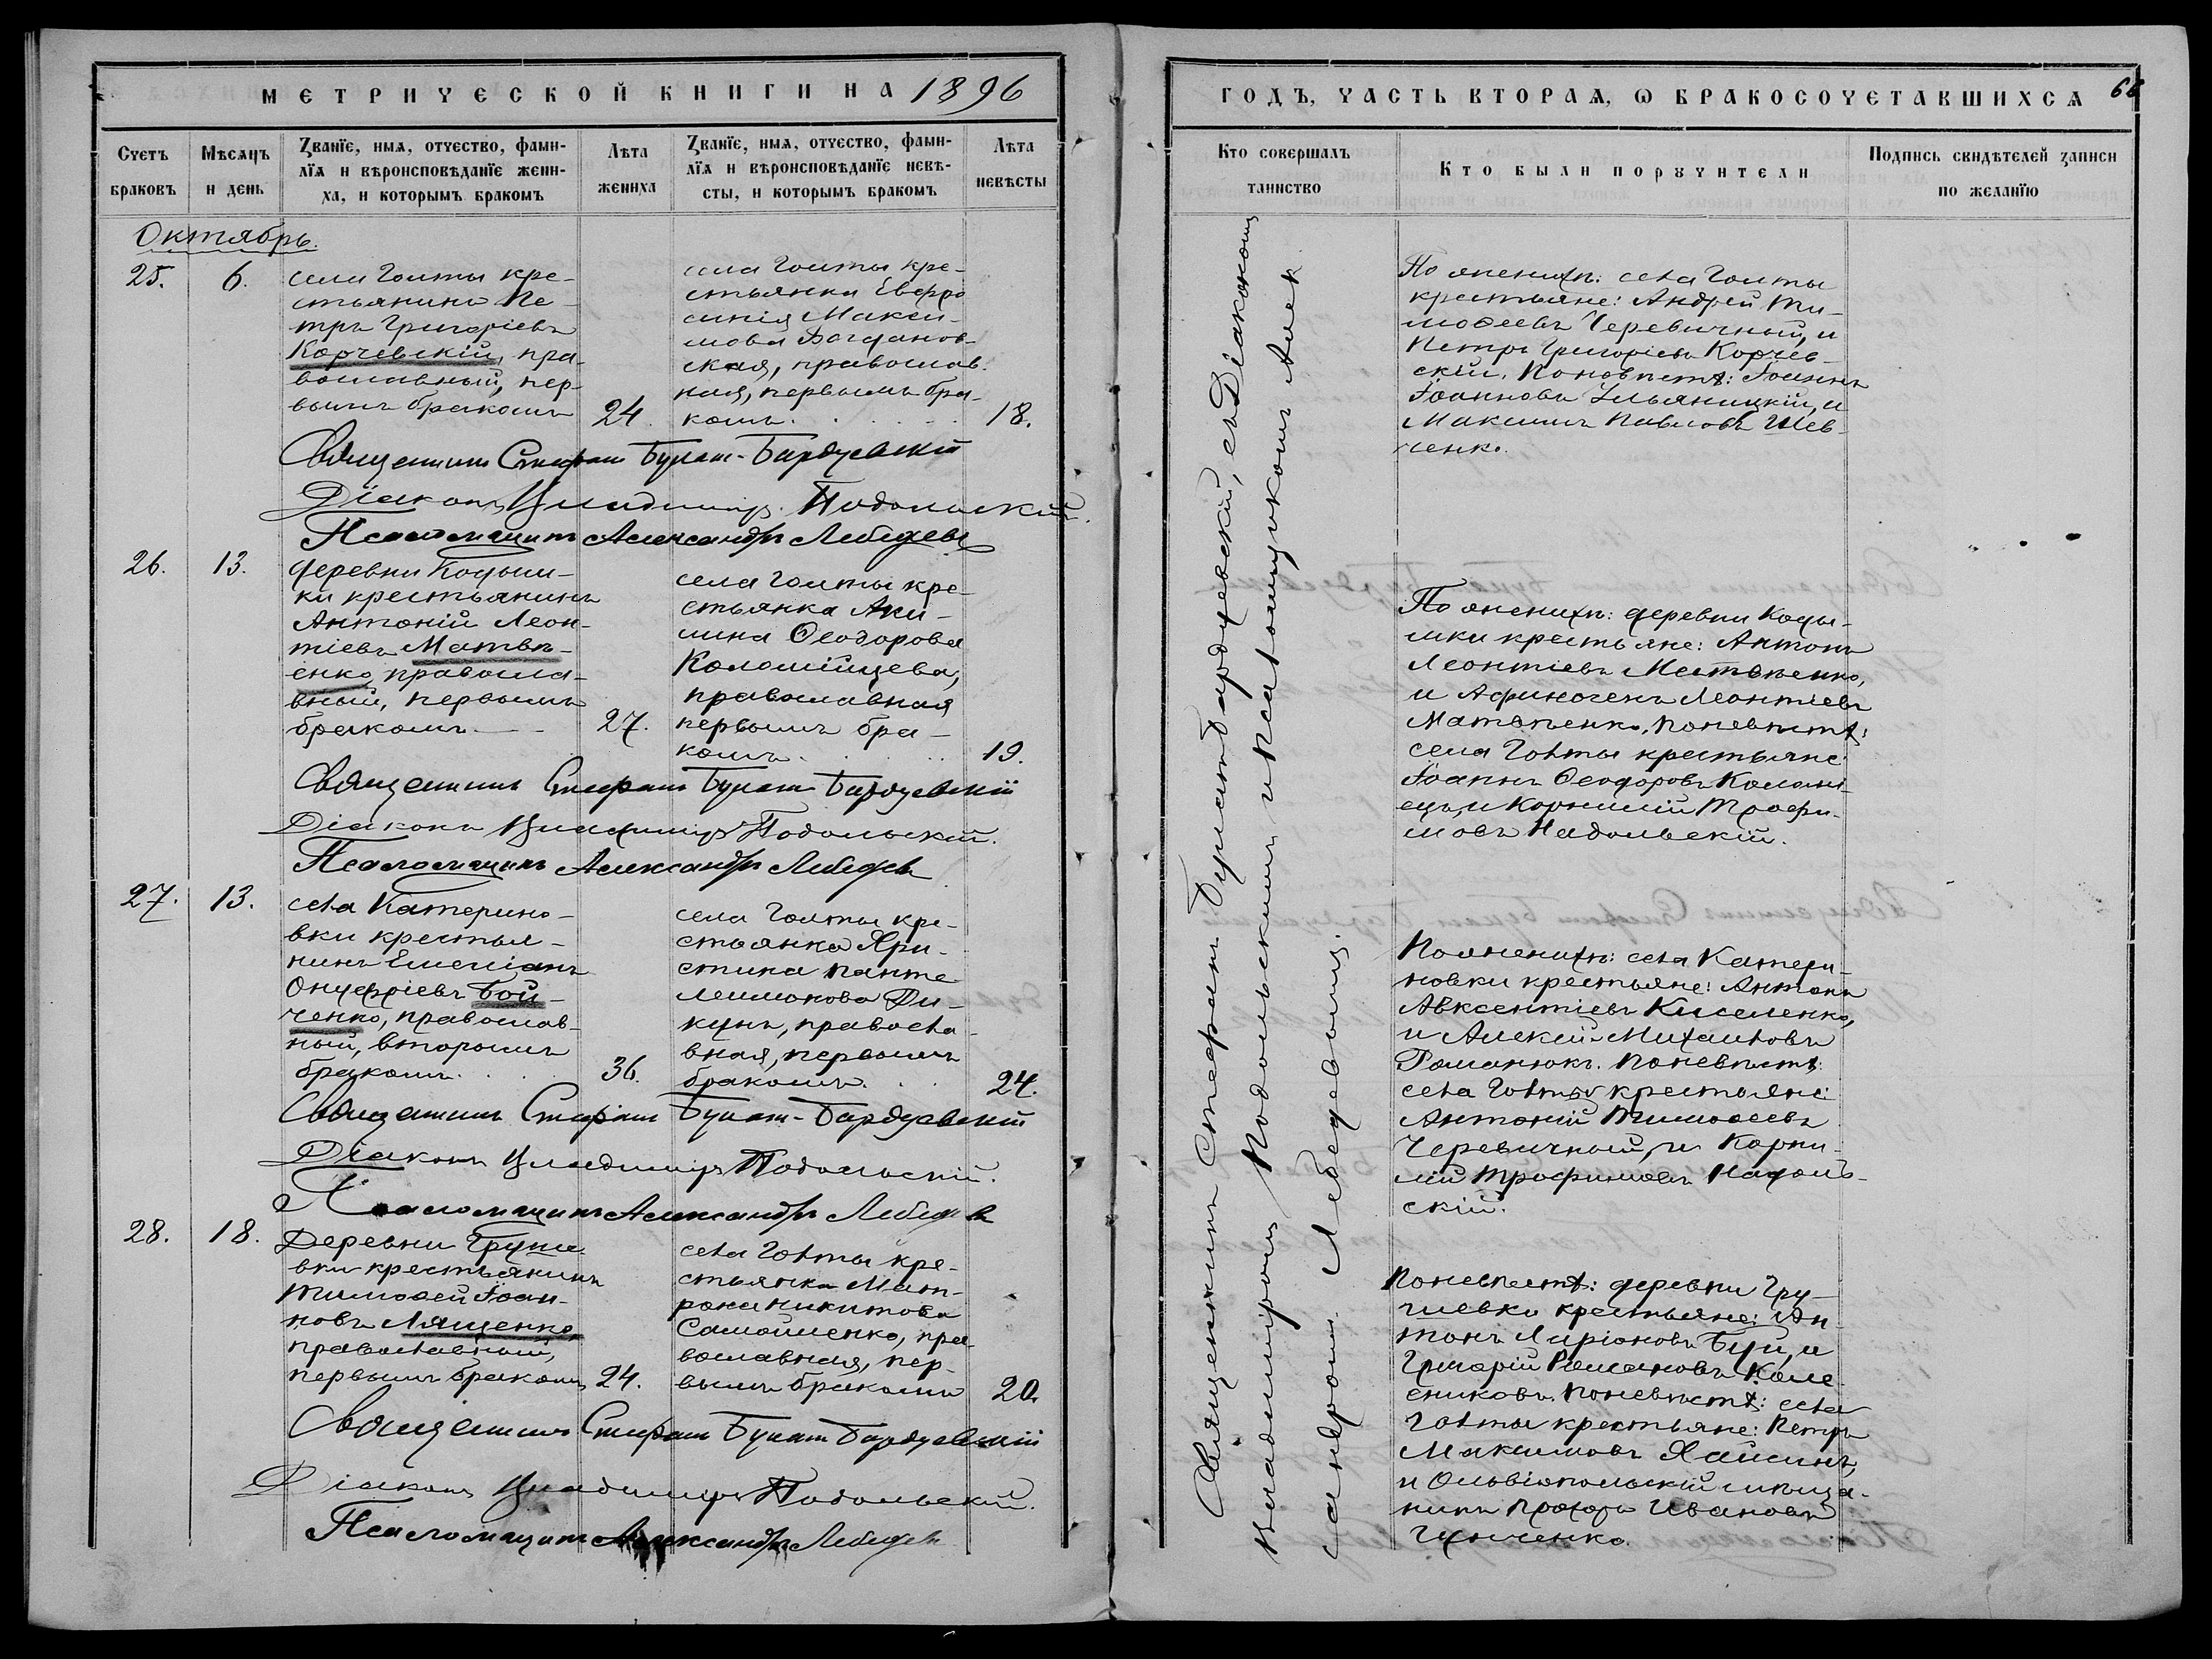 МЕТРИЧЕСКОЙ КНИГИ НА 1896
Счетъ браковъ
Мѣсяцъ и день
Званїе, имя, отчество, фамилїя и вѣроисповѣданїе жениха, и которымъ бракомъ
Лѣта жениха
Званїе, имя, отчество, фамилїя и вѣроисповѣданїе невѣсты, и которымъ бракомъ
Лѣта невѣсты
Октябрь.
25.
6.
села Голты кре-
стьянинъ Пе-
тръ Григоріевъ
Корчевскій, пра-
вославный, пер-
вымъ бракомъ
24.
села Голты кре-
стьянка Евфро
синія Макси-
мова Богданов-
ская, православ-
ная, первымъ бра-
комъ.
18.
Священникъ Стефанъ Булат-Бардуевскій
Діаконъ Владимиръ Подольскій.
Псаломщикъ Александръ Лебедевъ
26.
13.
деревни Кодым-
ки крестьянинъ
Антоній Леон-
тіевъ Матвѣ-
енко, правосла-
вный, первымъ
бракомъ.
27.
села Голты кре-
стьянка Аки-
лина Ѳеодорова
Коломійцева,
православная
первымъ бра-
комъ.
19.
Священникъ Стефанъ Булат Бардуевскій
Діаконъ Владимиръ Подольскій.
Псаломщикъ Александръ Лебедевъ
27.
13.
села Катерино-
вки крестья-
нинъ Емеліанъ
Онуфріевъ Бой-
ченко, православ-
ный, вторымъ
бракомъ.
36.
села Голты кре-
стьянка Хри-
стина Панте
леимонова Ди-
кунъ, правосла-
вная, первымъ
бракомъ.
24.
Священникъ Стефанъ Булат-Бардуевскій
Діаконъ Владимиръ Подольскій.
Псаломщикъ Александръ Лебедевъ
28.
18.
Деревни Груше
вки крестьянинъ
Тимоѳей Іоан-
новъ Лященко
православный,
первымъ бракомъ
24.
села Голты кре-
стьянка Мат-
рона Никитова
Самойленко, пра-
вославная, пер-
вымъ бракомъ
20.
Священникъ Стефанъ Булат Бардуевскій
Діаконъ Владимиръ Подольскій.
Псаломщикъ Александръ Лебедевъ
ГОДЪ, ЧАСТЬ ВТОРАЯ, Ѡ БРАКОСОЧЕТАВШИХСЯ
66
Кто совершалъ таинство
Кто были порꙋчители
Подпись свидѣтелей записи по желанїю
Священникъ Стефанъ Булатъ Бардуевскій, съ Діакономъ
Владиміромъ Подольскимъ и Псаломщикомъ Алек
сандромъ Лебедевымъ.
По женихѣ: села Голты
крестьяне: Андрей Ти-
моѳеевъ Черевичный, и
Петръ Григоріевъ Корчев-
скій. По невѣстѣ: Іоаннъ
Іоанновъ Ульяницкій, и
Максимъ Павловъ Шев-
ченко.
По женихѣ: деревни Коды-
мки крестьяне: Антонъ
Леонтіевъ Матвѣенко,
и Афиногенъ Леонтіевъ
Матвѣенко, по невѣстѣ:
села Голты крестьяне
Іоаннъ Ѳеодоровъ Коломі
ецъ, и Корнилій Трофи-
мовъ Надольскій.
По женихѣ: села Катери-
новки крестьяне: Антонъ
Авксентіевъ Киселенко,
и Алексій Михаиловъ
Романюкъ. По невѣстѣ
села Голты крестьяне:
Антоній Тимоѳеевъ
Черевичный, и Корни-
лій Трофимовъ Надоль-
скій.
По невѣстѣ: деревни Гру-
шевки крестьяне: Ан-
тонъ Ларіоновъ Буй, и
Григорій Романовъ Коле-
сниковъ. По невѣстѣ: села
Голты крестьяне: Петръ
Максимовъ Хаисинъ,
и Ольвіопольскій мѣща-
нинъ Прохоръ Ивановъ
Гунченко.